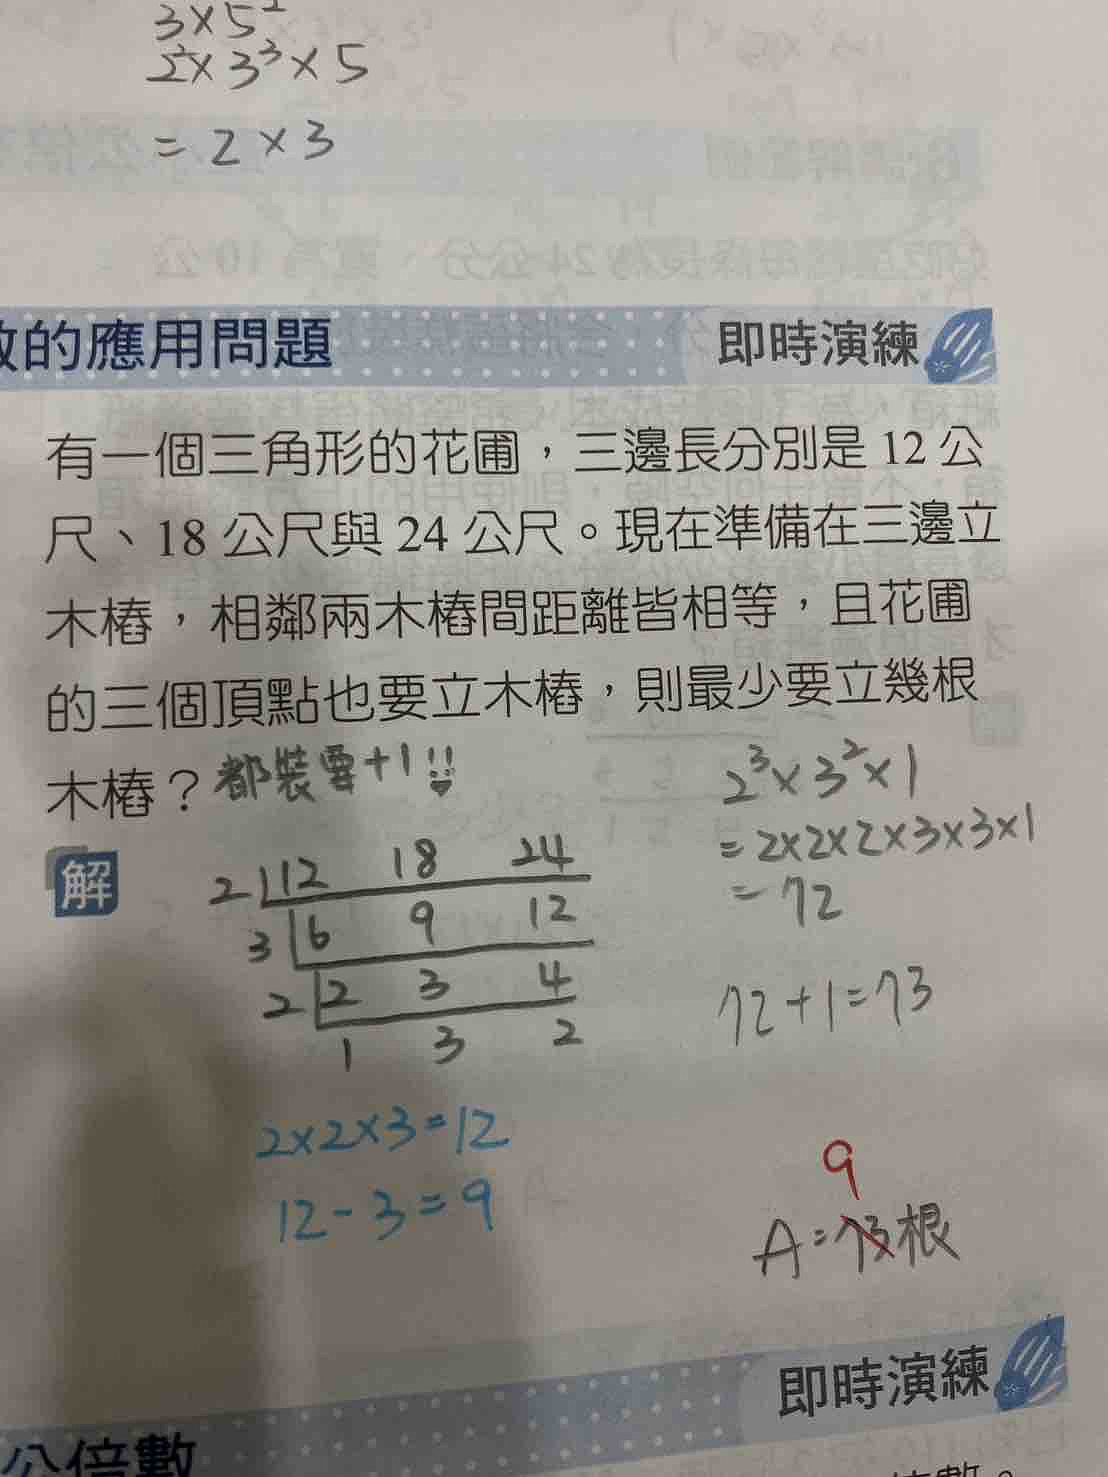 3×5²
2²×3³×5
=2×3
的應用問題
即時演練
有一個三角形的花圃，三邊長分別是 12 公
尺、18 公尺與 24 公尺。現在準備在三邊立
木樁，相鄰兩木樁間距離皆相等，且花圃
的三個頂點也要立木樁，則最少要立幾根
木樁？都裝要+1!!
解
2 12 18 24
3 6 9 12
2 2 3 4
1 3 2
2³×3²×1
=2×2×2×3×3×1
=72
72+1=73
2×2×3=12
12-3=9
9
A=73根
即時演練
公倍數